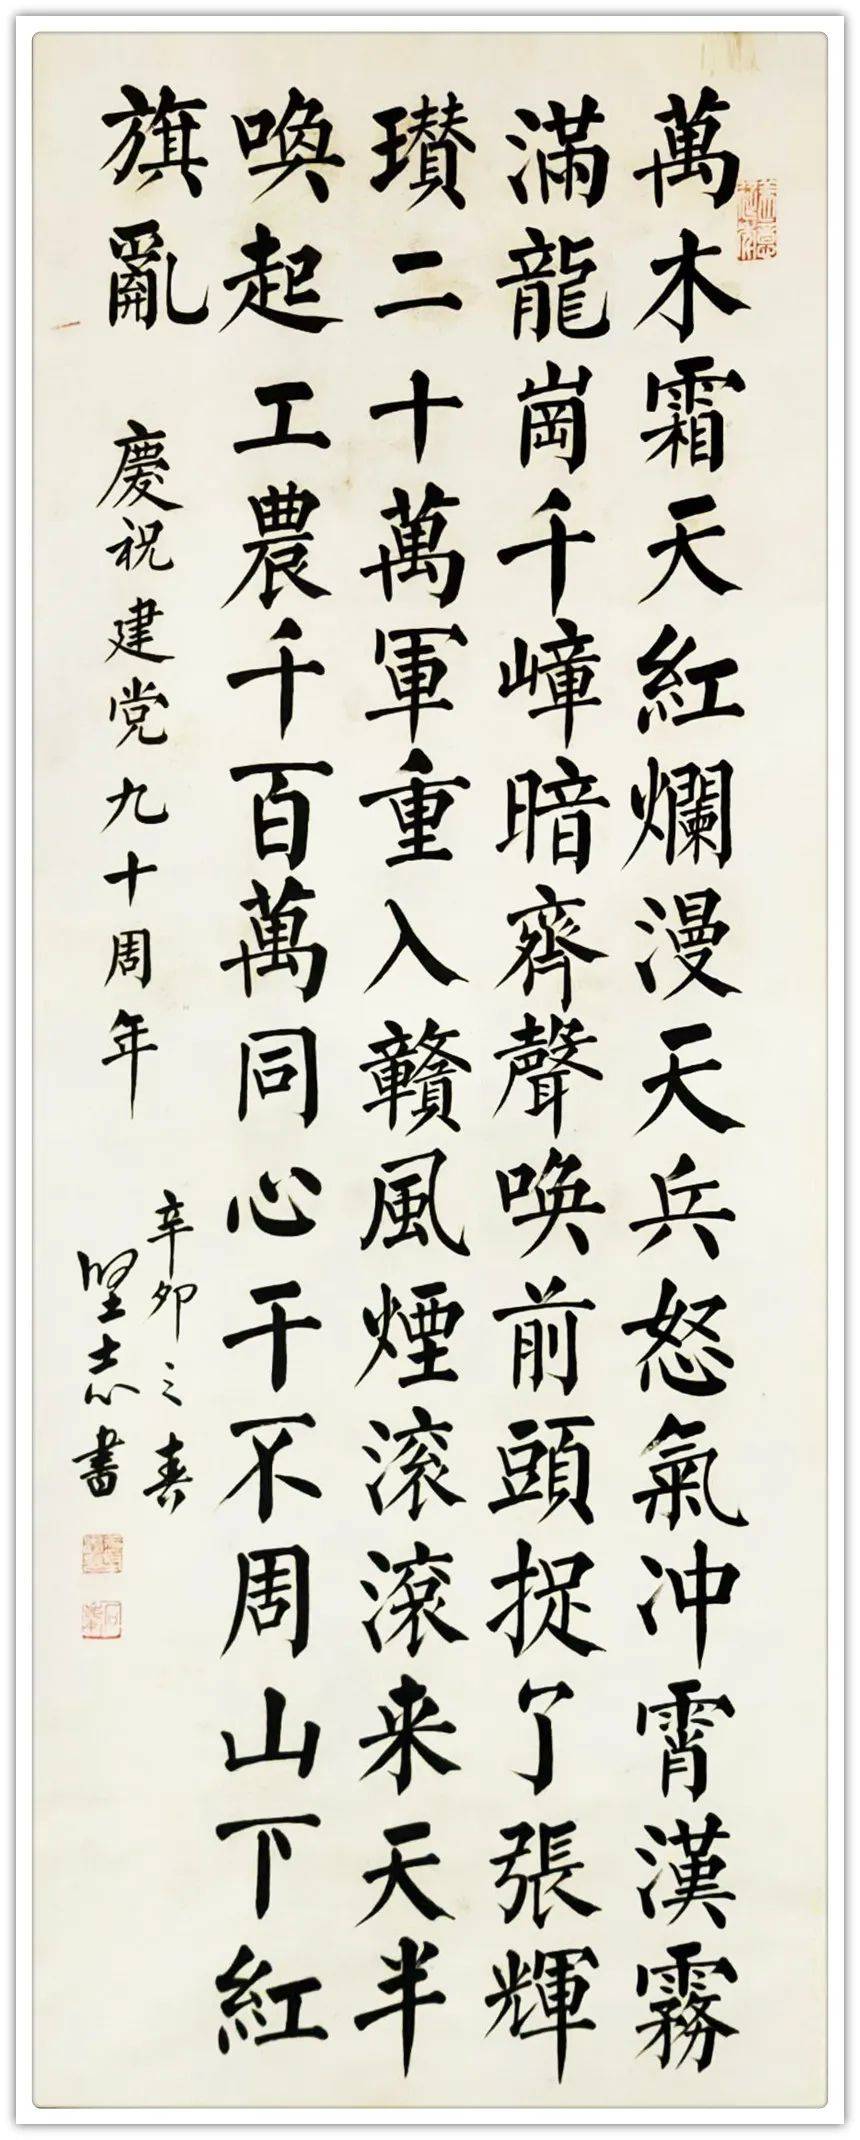 萬木霜天紅爛漫天兵怒氣冲霄漢霧
滿龍崗千嶂暗齊聲唤前頭捉了張輝
瓚二十萬軍重入贛風煙滚滚来天半
唤起工農千百萬同心干不周山下紅
旗亂
慶祝建党九十周年
辛卯之春
堅志書